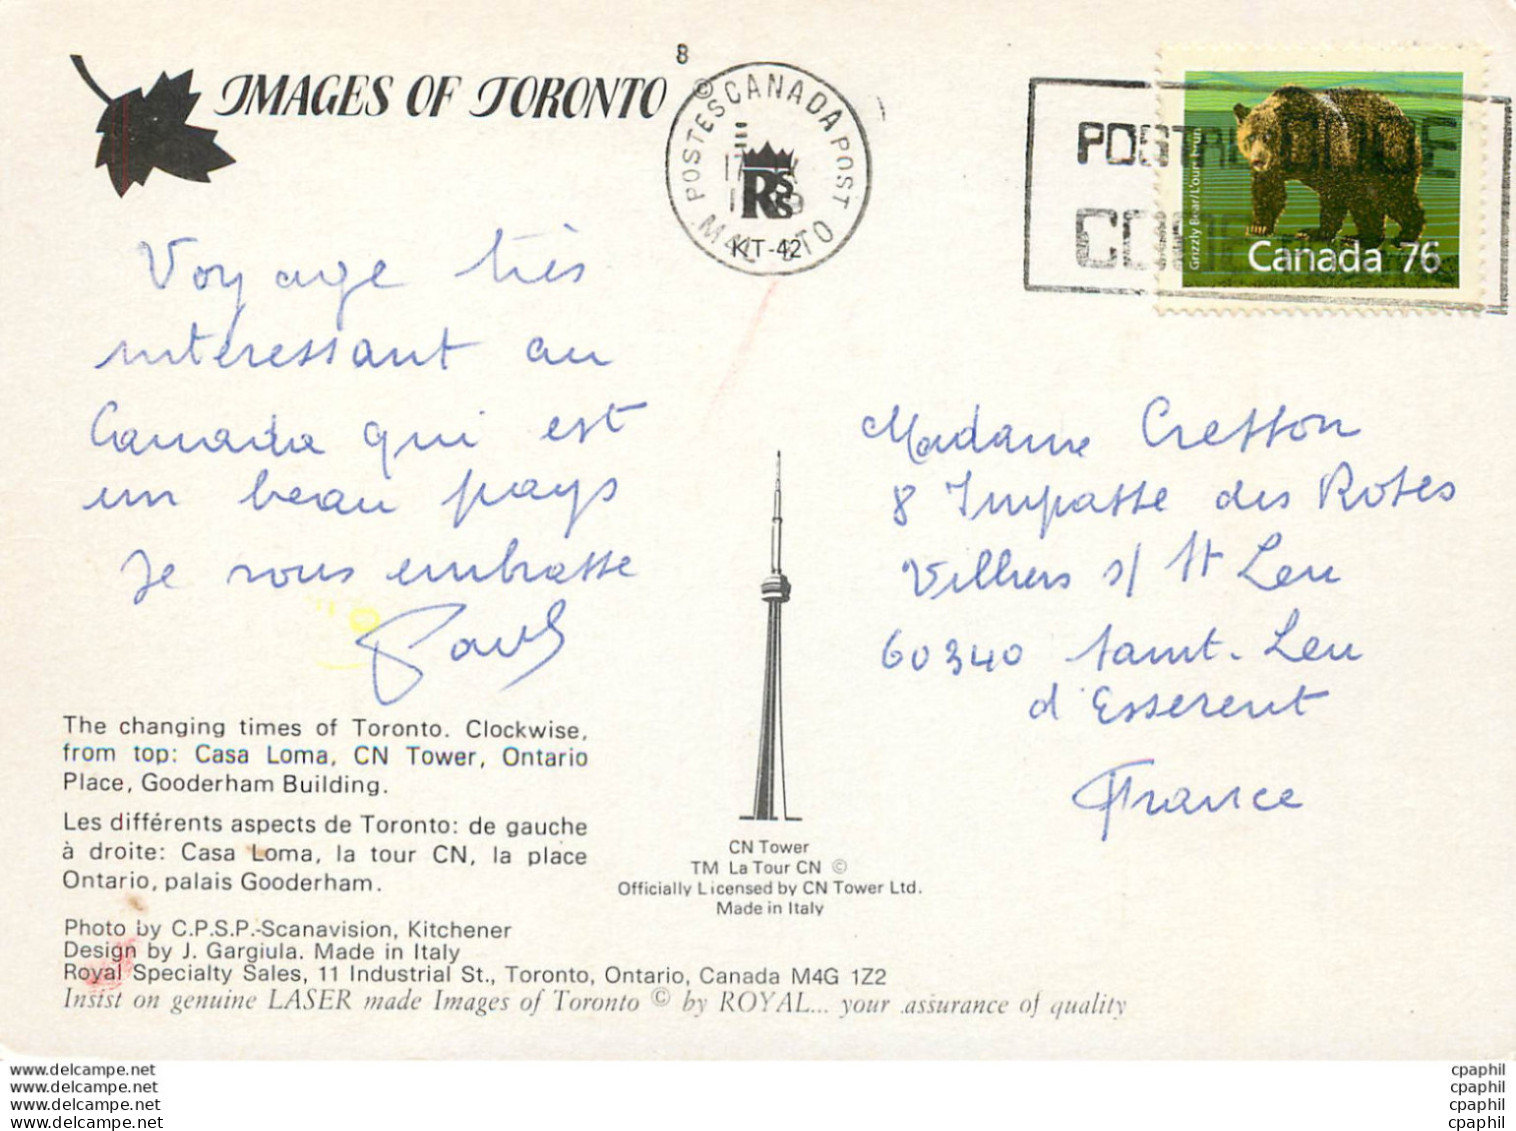 IMAGES OF TORONTO
8
POSTES CANADA POST
17
RSS
M4L TO
KT-42
POSTAL CODE
Grizzly Bear/L'ours brun
Canada 76
Voyage très
interessant au
Canada qui est
un beau pays
Je vous embrasse
Paul
Madame Cresson
8 Impasse des Roses
Villiers s/ St Leu
60340 Saint-Leu
d'Esserent
France
The changing times of Toronto. Clockwise,
from top: Casa Loma, CN Tower, Ontario
Place, Gooderham Building.
Les différents aspects de Toronto: de gauche
à droite: Casa Loma, la tour CN, la place
Ontario, palais Gooderham.
CN Tower
TM La Tour CN ©
Officially Licensed by CN Tower Ltd.
Made in Italy
Photo by C.P.S.P.-Scanavision, Kitchener
Design by J. Gargiula. Made in Italy
Royal Specialty Sales, 11 Industrial St., Toronto, Ontario, Canada M4G 1Z2
Insist on genuine LASER made Images of Toronto © by ROYAL... your assurance of quality
www.delcampe.net
www.delcampe.net
www.delcampe.net
www.delcampe.net
cpaphil
cpaphil
cpaphil
cpaphil